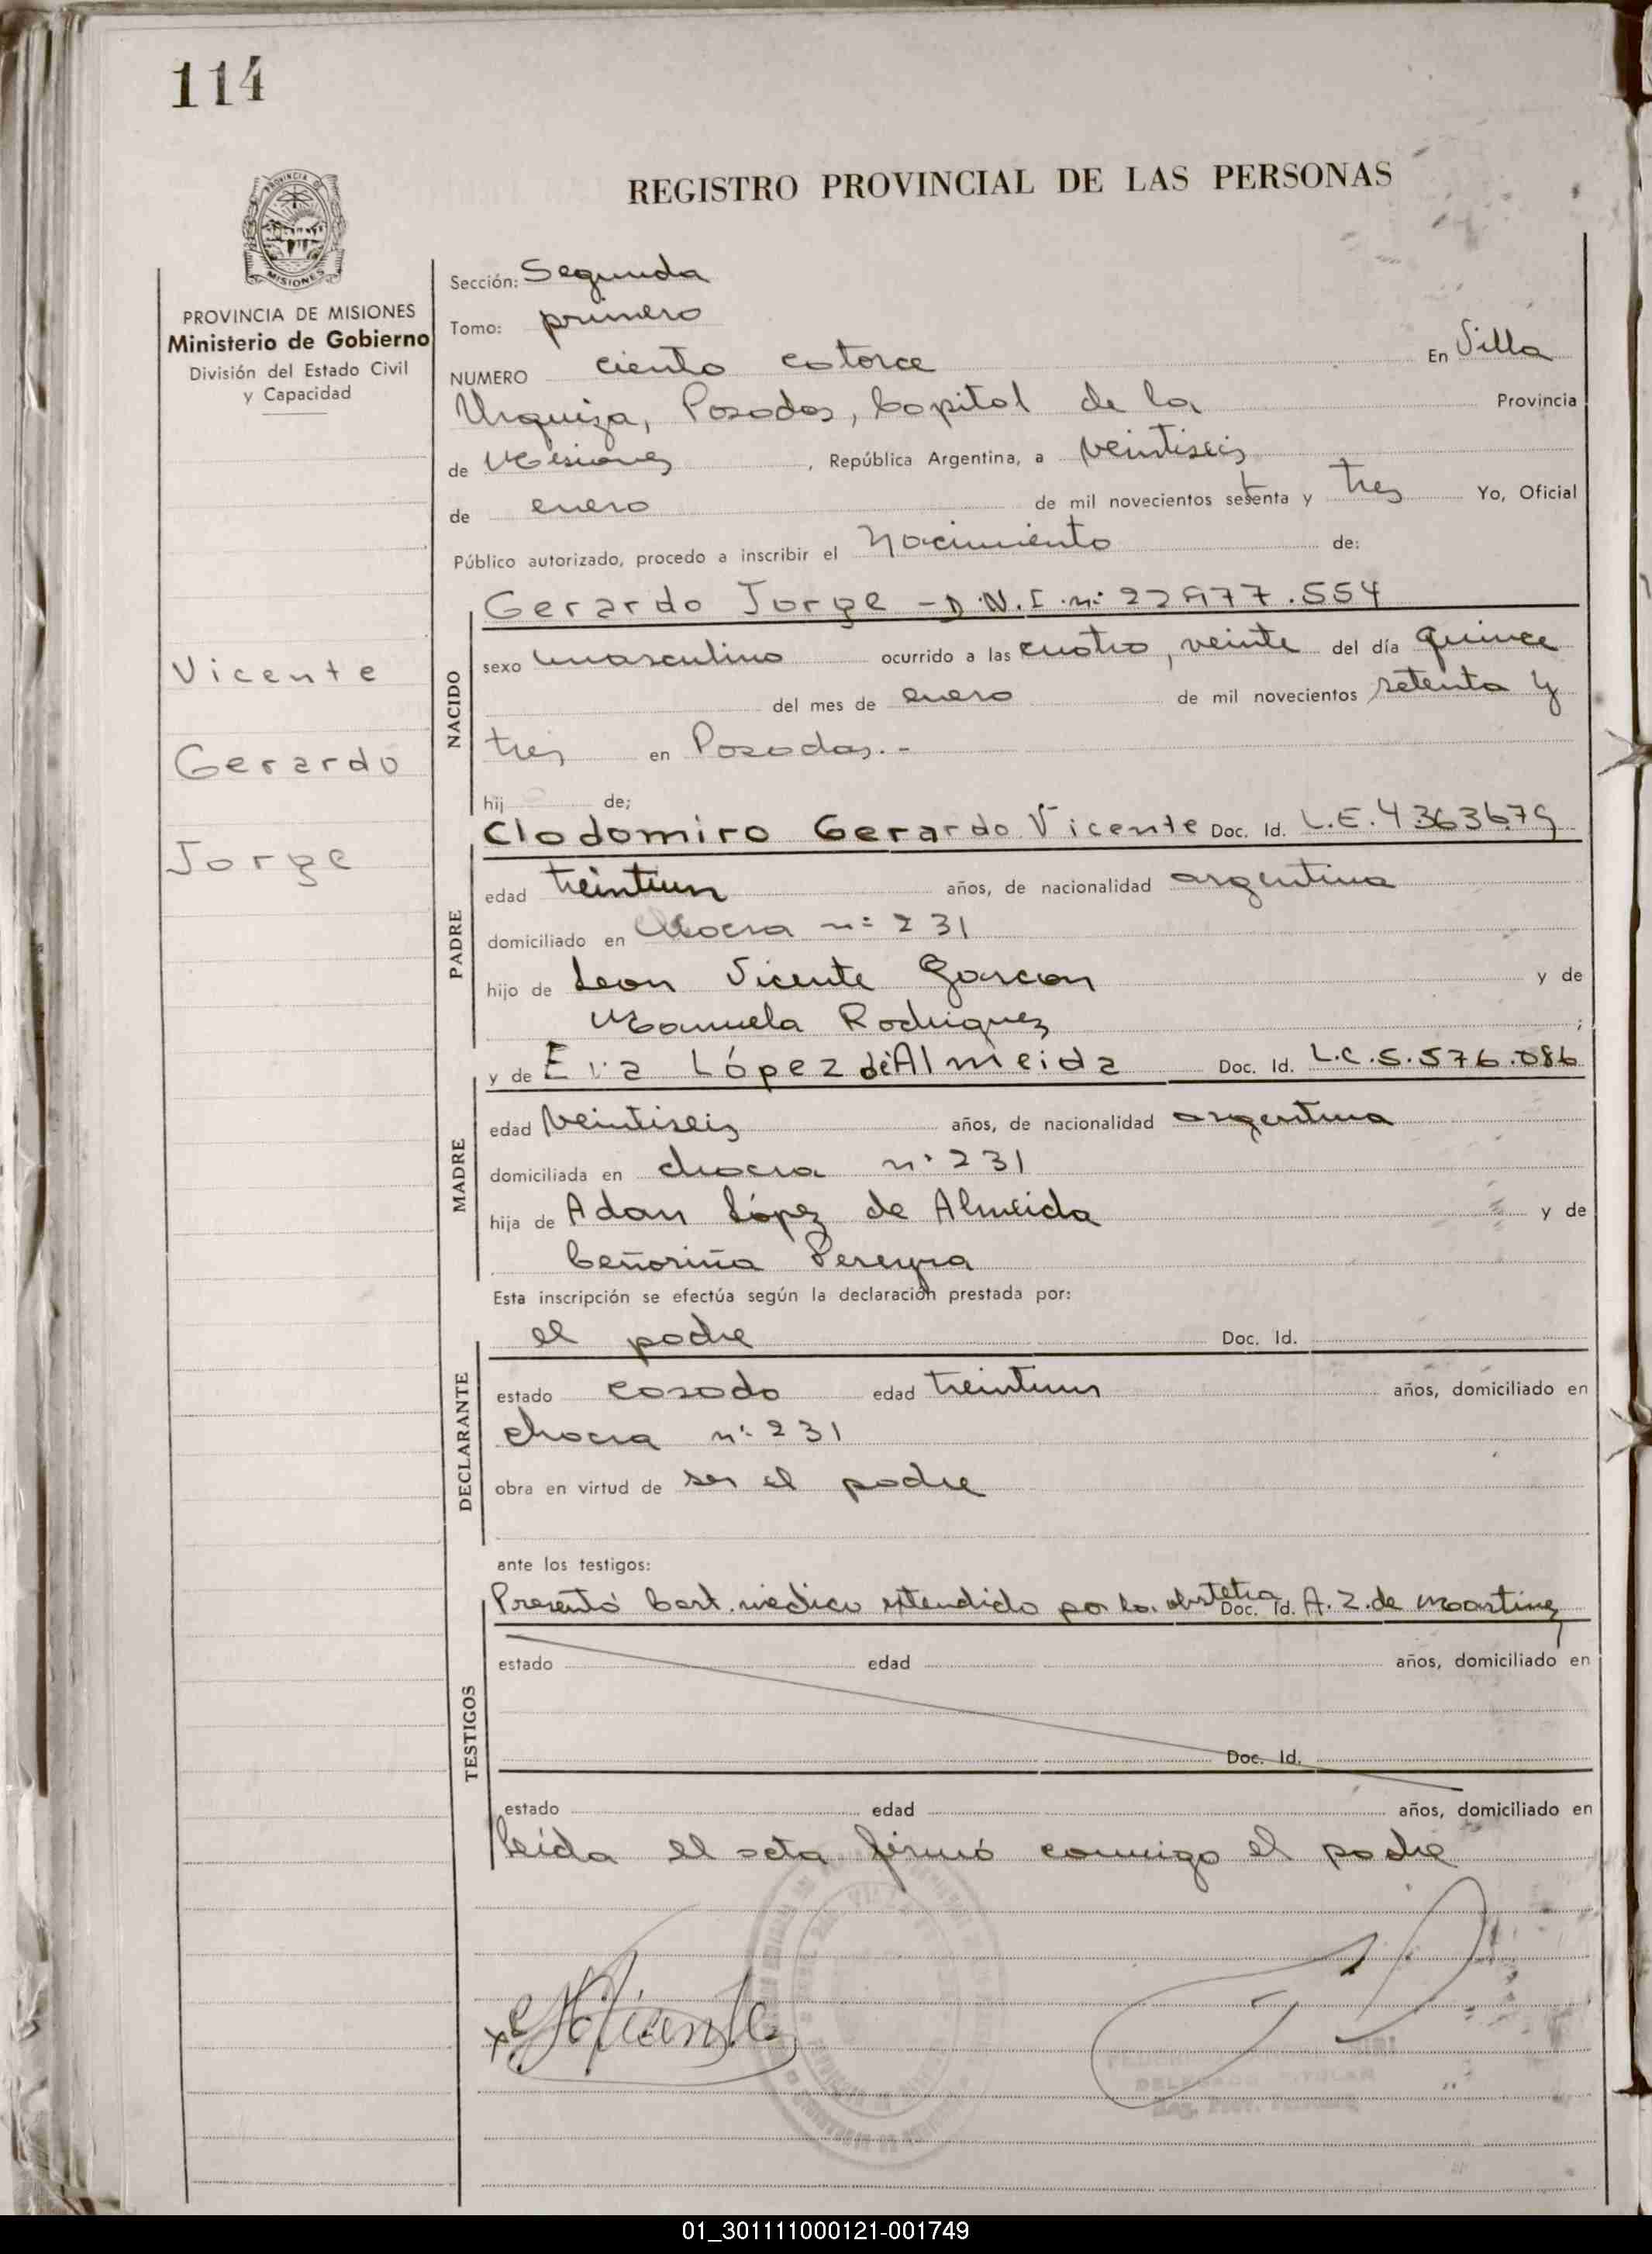 114
REGISTRO PROVINCIAL DE LAS PERSONAS
PROVINCIA DE
MISIONES
PROVINCIA DE MISIONES
Ministerio de Gobierno
División del Estado Civil
y Capacidad
Vicente
Gerardo
Jorge
Sección: Segunda
Tomo: primero
NUMERO ciento catorce En Villa
Urquiza, Posadas, Capital de la Provincia
de Misiones, República Argentina, a veintiseis
de enero de mil novecientos setenta y tres Yo, Oficial
Público autorizado, procedo a inscribir el Nacimiento de:
NACIDO
Gerardo Jorge - D.N.I. nº 22977.554
sexo masculino ocurrido a las cuatro, veinte del día quince
del mes de enero de mil novecientos setenta y
tres en Posadas.-
hij de;
PADRE
Clodomiro Gerardo Vicente Doc. Id. L.E. 4363679
edad treintiun años, de nacionalidad argentina
domiciliado en Chacra nº 231
hijo de Leon Vicente y de
Manuela Rodriguez ;
MADRE
y de Eva López de Almeida Doc. Id. L.C. 5.576.086
edad veintiseis años, de nacionalidad argentina
domiciliada en chacra nº 231
hija de Adan López de Almeida y de
Ceñoriña Pereyra
Esta inscripción se efectúa según la declaración prestada por:
DECLARANTE
el padre Doc. Id.
estado casado edad treintiun años, domiciliado en
chacra nº 231
obra en virtud de ser el padre
ante los testigos:
TESTIGOS
Presentó Cert. médico extendido por la obstetra Doc. Id. A. Z. de Martinez
estado edad años, domiciliado en
Doc. Id.
estado edad años, domiciliado en
Leída el acta firmó conmigo el padre
Vicente
DELEGADO TITULAR
01_301111000121-001749